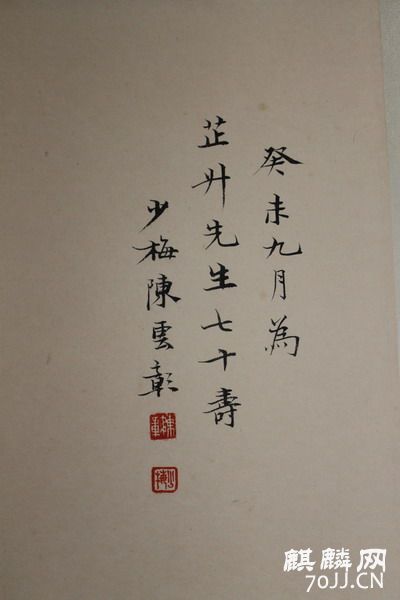 癸未九月為
芷升先生七十壽
少梅陳雲彰
麒麟网
70JJ.CN